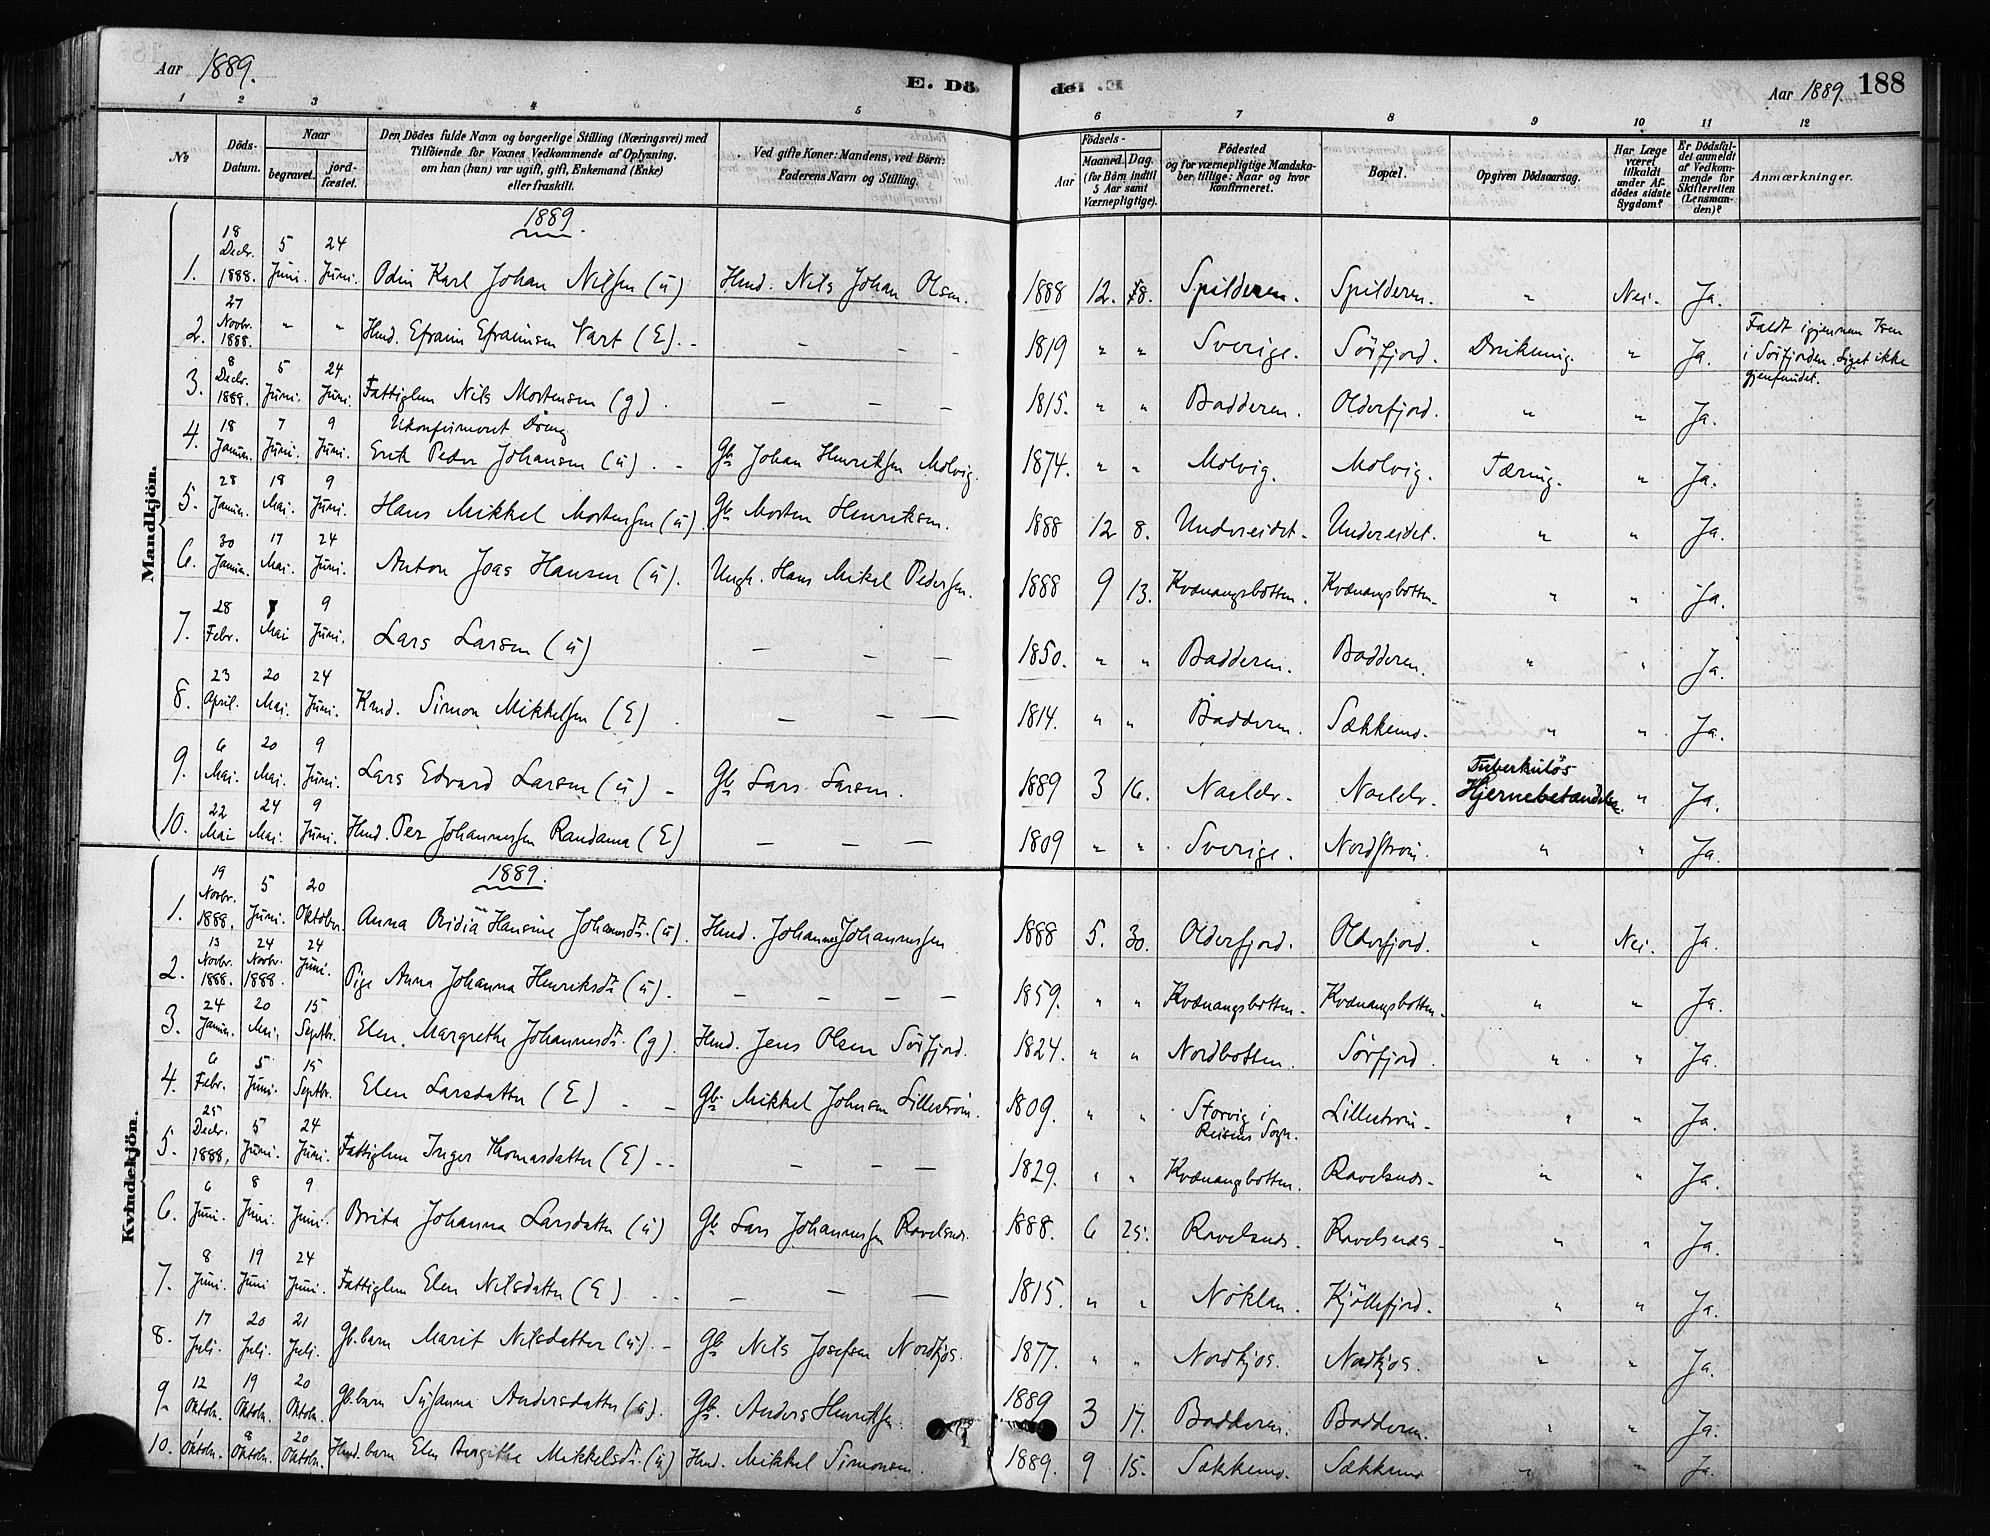 Aar 1889.
E. Dö
de. E
Aar 1889. 188
1 2 3 4 5 6 7 8 9 10 11 12
No
Döds-Datum.
Naar
begravet.
jord-fæstet.
Den Dödes fulde Navn og borgerlige Stilling (Næringsvei) med
Tilföiende for Voxnes Vedkommende af Oplysning,
om han (hun) var ugift, gift, Enkemand (Enke)
eller fraskilt.
Ved gifte Koner: Mandens, ved Börn:
Faderens Navn og Stilling.
Födsels-
Aar
Maaned. Dag.
(for Börn indtil
5 Aar samt
Værnepligtige).
Födested
og for værnepligtige Mandska-
ber tillige: Naar og hvor
konfirmeret.
Bopæl.
Opgiven Dödsaarsag.
Har Læge
været
tilkaldt
under Af-
dödes sidste
Sygdom?
Er Dödsfal-
det anmeldt
af Vedkom-
mende for
Skifteretten
(Lensman-
den)?
Anmærkninger.
Mandkjön.
1889.
1. 18 Decbr. 1888. 5 Juni. 24 Juni. Odin Karl Johan Nilsen (u) Hmd. Nils Johan Olsen. 1888 12. 18. Spilderen. Spilderen. " Nei. Ja.
2. 27 Novbr. 1888. " " Hmd. Efraim Efraimsen Vart (E). - - - - 1819 " " Sverige. Sörfjord. Drukning. " Ja. Faldt igjennem Isen
i Sörfjorden. Liget ikke
gjenfundet.
3. 8 Decbr. 1889. 5 Juni. 24 Juni. Fattiglem Nils Mortensen (g). - - - 1815. " " Badderen. Olderfjord. " " Ja.
4. 18 Januar. 7 Juni. 9 Juni. Ukonfirmeret Dreng
Erik Peder Johansen (u). - Gb Johan Henriksen Molvig. 1874. " " Molvig. Molvig. Tæring. " Ja.
5. 28 Januar. 18 Mai. 9 Juni. Hans Mikkel Mortensen (u). Gb Morten Henriksen. 1888 12 8. Undereidet. Undereidet. " " Ja.
6. 30 Januar. 17 Mai. 24 Juni. Anton Joas Hansen (u). Ungk. Hans Mikal Pedersen. 1888 9 13. Kvænangsbotten. Kvænangsbotten. " " Ja.
7. 28 Febr. Mai 9 Juni. Lars Larsen (u) - - - 1850. " " Badderen. Badderen. " " Ja.
8. 23 April. 20 Mai. 24 Juni. Kmd. Simon Mikkelsen (E). - - - 1814. " " Badderen. Sækkemo. " " Ja.
9. 6 Mai. 20 Mai. 9 Juni. Lars Edvard Larsen (u) - Gb Lars Larsen. 1889 3 16. Naeldv. Naeldv. Tuberkulös
Hjernebetændelse. " Ja.
10. 22 Mai 24 Mai. 9 Juni. Hmd. Per Johannessen Randama (E) - - - 1809 " " Sverige. Nordström. " " Ja.
Kvindekjön.
1889.
1. 19 Novbr. 1888. 5 Juni. 20 Oktober. Anna Ovidia Hansine Johannesdtr. (u). Hmd. Johannes Johannessen 1888 5. 30. Olderfjord. Olderfjord. " Nei. Ja.
2. 13 Novbr. 1888. 24 Novbr. 1888. 24 Juni. Pige Anna Johanna Henriksdtr (u). - - - - 1859. " " Kvænangsbotten. Kvænangsbotten. " " Ja.
3. 24 Januar. 20 Mai. 15 Septbr. Elen Margrethe Johannesdtr. (g). Hmd. Jens Olsen Sörfjord. 1824. " " Nordbotten. Sörfjord. " " Ja.
4. 6 Febr. 5 Juni. 15 Septbr. Elen Larsdatter (E) - - Gb Mikkel Johnsen Lilleström. 1809. " " Storvig i
Reisens Sogn. Lilleström. " " Ja.
5. 25 Decbr. 1888. 5 Juni. 24 Juni. Fattiglem Inger Thomasdatter (E) - - - - - 1829. " " Kvænangsbotten. Ravelsnæs. " " Ja.
6. 6 Juni. 8 Juni. 9 Juni. Brita Johanna Larsdatter (u) Gb Lars Johannessen Ravelsnæs. 1888. 6 25. Ravelsnæs. Ravelsnæs. " " Ja.
7. 8 Juni. 19 Juni 24 Juni. Fattiglem Elen Nilsdatter (E) - - - - 1815. " " Nöklan. Kjöllefjord. " " Ja.
8. 17 Juli. 20 Juli. 21 Juli. Gb.barn Marit Nilsdatter (u). - Gb Nils Josefsen Nordkjos. 1877. " " Nordkjos. Nordkjos. " " Ja.
9. 12 Oktobr. 19 Oktobr. 20 Oktobr. Gb.barn Susanna Andersdatter (u). Gb. Anders Henriksen. 1889 3 17. Badderen. Badderen. " " Ja.
10. 1 Oktobr. 8 Oktobr. 20 Oktobr. Hmd.barn Elen Bergithe Mikkelsdtr. (u) Hmd. Mikkel Simonsen. 1889. 9 15. Sækkemo. Sækkemo " " Ja.